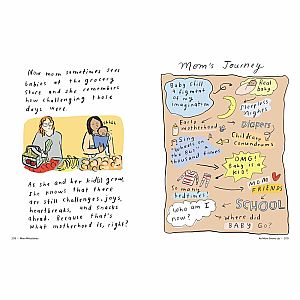 Now mom sometimes sees
babies at the grocery
store and she remembers
how challenging those
days were.
As she and her kid(s) grow,
she knows that there
are still challenges, joys,
heartbreaks, and snacks
ahead. Because that's
what motherhood is, right?
Mom's Journey
Baby still a
figment of my
imagination
Real
baby!
Sleepless
nights
Early
motherhood
Diapers
Childcare
conundrums
Sing
"Wheels on
the Bus" a
thousand times
OMG!
Baby is a
KID!
So many
bedtimes!
MOM
FRIENDS
SCHOOL
Who am I
now?
Where did
BABY Go?